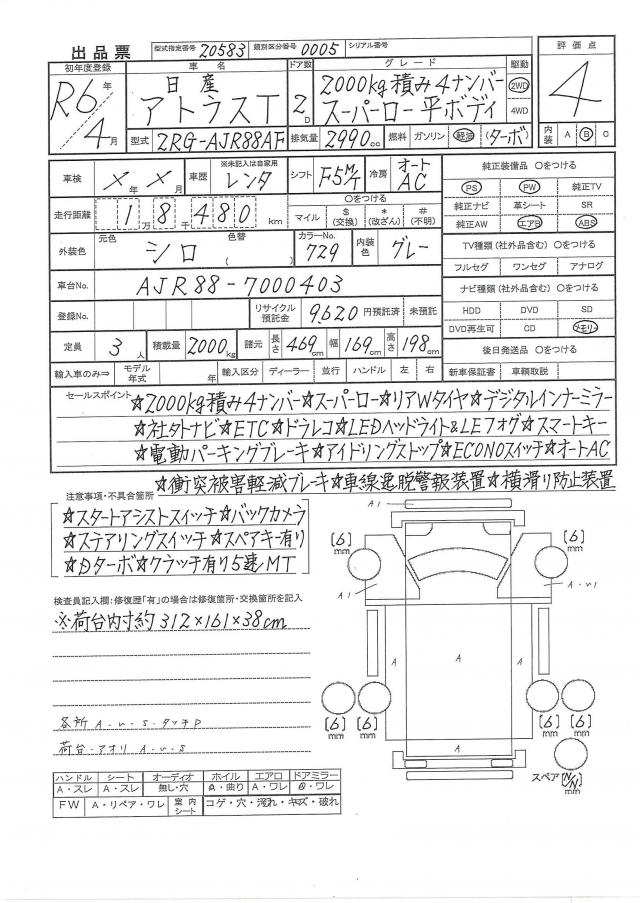 出品票
型式指定番号 20583 類別区分番号 0005 シリアル番号
初年度登録 車名 ドア数 グレード 駆動 評価点
R6年 4月
日産 アトラスT
2D
2000kg積み4ナンバー
スーパーロー平ボディ
2WD
4WD
4
型式 2RG-AJR88AF 排気量 2990cc 燃料 ガソリン 軽油 (ターボ) 内装 A B C
車検 ×年×月 車歴 ※未記入は自家用 レンタ シフト F5M/T 冷房 オートAC
純正装備品 ○をつける
PS PW 純正TV
純正ナビ 革シート SR
純正AW エアB ABS
走行距離 1万8千480km
○をつける
マイル $(交換) *(改ざん) #(不明)
TV種類(社外品含む) ○をつける
フルセグ ワンセグ アナログ
外装色 元色 シロ 色替 ( ) カラーNo. 729 内装色 グレー
車台No. AJR88-7000403
ナビ種類(社外品含む) ○をつける
HDD DVD SD
DVD再生可 CD メモリー
登録No. リサイクル預託金 9,620 円預託済 未預託
定員 3人 積載量 2000kg 諸元 長さ 469cm 幅 169cm 高さ 198cm
後日発送品 ○をつける
輸入車のみ⇒ モデル年式 年 輸入区分 ディーラー 並行 ハンドル 左 右 新車保証書 車輌取説
セールスポイント ☆2000kg積み4ナンバー☆スーパーロー☆リアWタイヤ☆デジタルインナーミラー
☆社外ナビ☆ETC☆ドラレコ☆LEDヘッドライト&LEフォグ☆スマートキー
☆電動パーキングブレーキ☆アイドリングストップ☆ECONOスイッチ☆オートAC
☆衝突被害軽減ブレーキ☆車線逸脱警報装置☆横滑り防止装置
注意事項・不具合箇所
☆スタートアシストスイッチ☆バックカメラ
☆ステアリングスイッチ☆スペアキー有り
☆Dターボ☆クラッチ有り5速MT
検査員記入欄:修復歴「有」の場合は修復箇所・交換箇所を記入
※荷台内寸約312×161×38cm
各所 A・U・S・タッチP
荷台・アオリ A・U・S
A1
[6]mm
[6]mm
A1
A・U1
A
A
A
A
[6]mm
[6]mm
[6]mm
[6]mm
スペア[N/N]mm
ハンドル シート オーディオ ホイル エアロ ドアミラー
A・スレ A・スレ 無し・穴 A・曲り A・ワレ A・ワレ
FW A・リペア・ワレ 室内シート コゲ・穴・汚れ・キズ・破れ